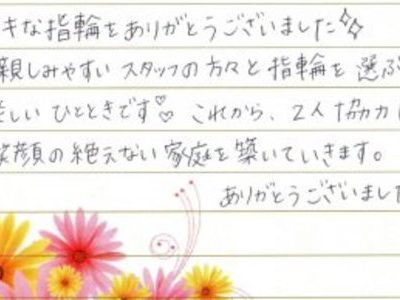 キな指輪をありがとうございました
親しみやすい スタッフの方々と 指輪を 選ぶ
しい ひとときです♡ これから、2人 協力
笑顔の絶えない 家庭を 築いていきます。
ありがとうございました